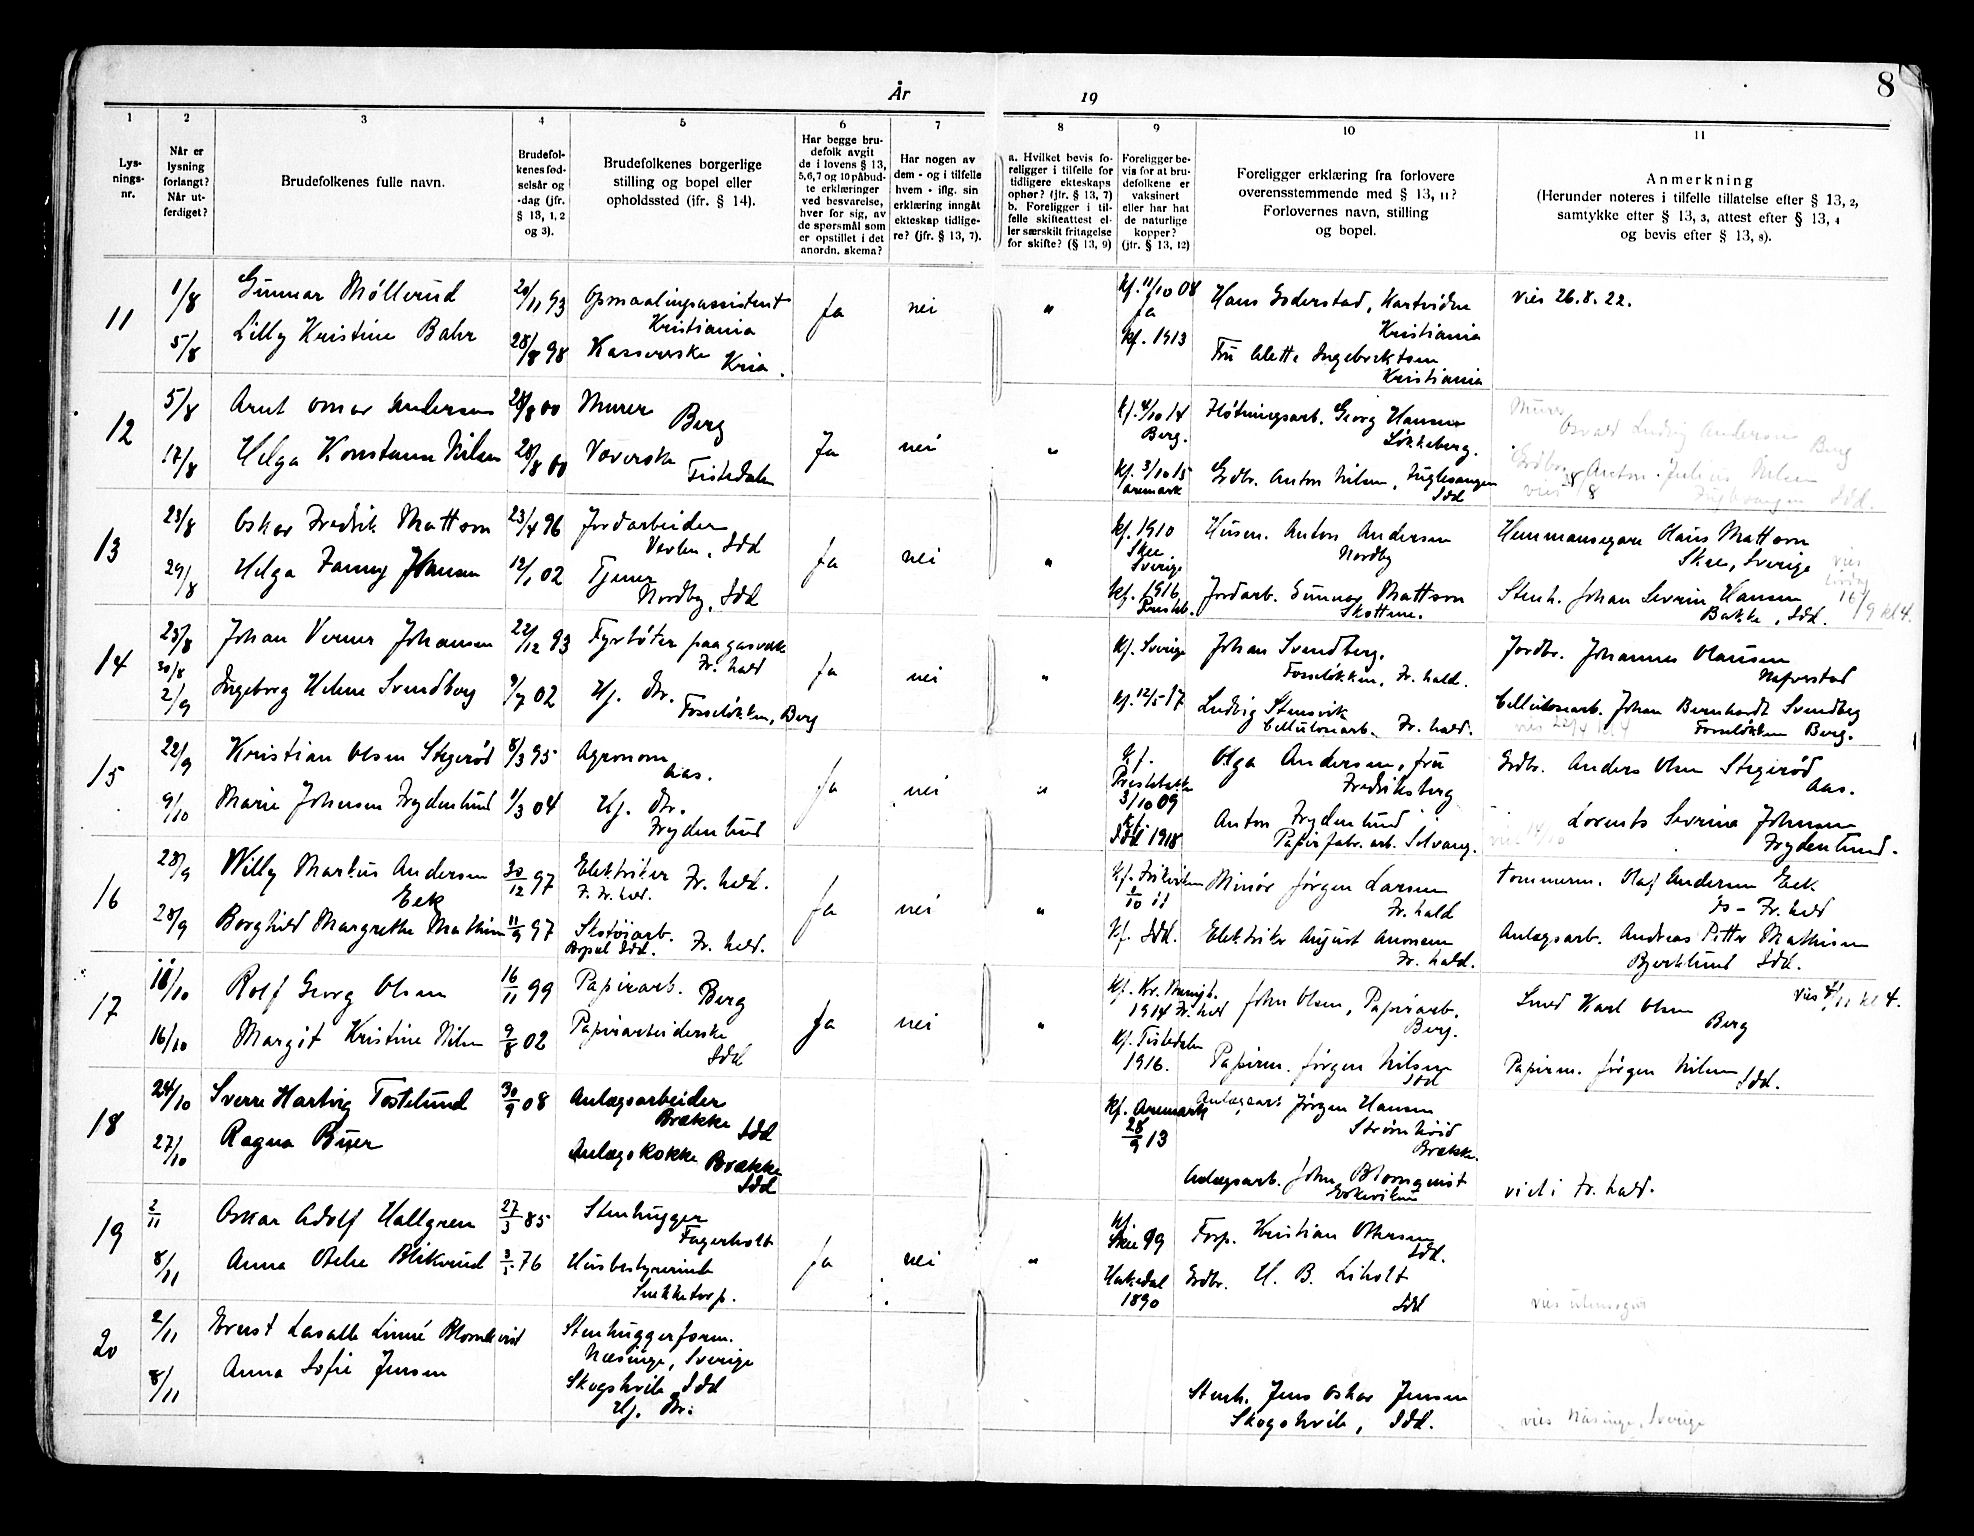 8
År 19
1 2 3 4 5 6 7 8 9 10 11
Lys-
nings-
nr.
Når er
lysning
forlangt?
Når ut-
ferdiget?
Brudefolkenes fulle navn.
Brudefol-
kenes fød-
selsår og
-dag (jfr.
§ 13, 1, 2
og 3).
Brudefolkenes borgerlige
stilling og bopel eller
opholdssted (ifr. § 14).
Har begge bru-
defolk avgit
de i lovens § 13,
5,6,7 og 10 påbud-
te erklæringer
ved besvarelse,
hver for sig, av
de spørsmål som
er opstillet i det
anordn. skema?
Har nogen av
dem - og i tilfelle
hvem - iflg. sin
erklæring inngåt
ekteskap tidlige-
re? (jfr. § 13, 7).
a. Hvilket bevis fo-
religger i tilfelle for
tidligere ekteskaps
ophør? (jfr. § 13, 7)
b. Foreligger i til-
felle skifteattest el-
ler særskilt fritagelse
for skifte? (§ 13, 9)
Foreligger be-
vis for at bru-
defolkene er
vaksinert
eller har hat
de naturlige
kopper?
(jfr. § 13, 12)
Foreligger erklæring fra forlovere
overensstemmende med § 13, 11?
Forlovernes navn, stilling
og bopel.
Anmerkning
(Herunder noteres i tilfelle tillatelse efter § 13, 2,
samtykke efter § 13, 3, attest efter § 13, 4
og bevis efter § 13, 8).
11
1/8
5/8
Gunnar Møllerud
Lilly Kristine Bahr
20/11 93
28/8 98
Opmaalingsassistent
Kristiania
Kasserske
Kria.
Ja
nei
"
kf. 11/10 08
Ja
kf. 1913
Hans Soderstad, Kartvidne
Kristiania
Fru Alette Ingebrektsen
Kristiania
vies 26.8.22.
12
5/8
17/8
Arnt Omar Andersen
Helga Konstanse Nilsen
28/8 00
28/8 00
Murer
Berg
Væverske
Tistedalen
Ja
nei
"
kf. 4/10 14
Berg.
kf. 3/10 15
Aremark
Fløtningsarb. Georg Hansen
Løkkeberg.
Grdbr. Anton Nilsen, Fuglesangen
Idd
Murer
Osvald Ludvig Andersen
Berg
Grdbr. Anton Julius Nilsen
Fuglesangen Idd.
vies 28/8
13
23/8
29/8
Oskar Fredrik Mattson
Helga Fanny Johansen
23/4 96
12/1 02
Jordarbeider
Vevlen, Idd
Tjener
Nordby, Idd
Ja
nei
"
kf. 1910
Skee
Sverige
kf. 1916
Presteb.
Husm. Anton Andersen
Nordby
Jordarb. Gunnar Mattson
Skottene.
Hemmansegare Olaus Mattson
Skee, Sverige
Stenh. Johan Severin Hansen
Bakke, Idd.
vies
lørdag
16/9 kl 4.
14
23/8
30/8
2/9
Johan Verner Johansen
Ingeborg Helene Svendberg
22/12 93
9/7 02
Fyrbøter paa gasverk
Fr. hald
Hj. Dtr.
Fosseløkken, Berg
Ja
nei
"
kf. Sverige
kf. 12/5 17
Johan Svendberg.
Fosseløkken, Fr. hald.
Ludvig Stensvik
Cellulosearb. Fr. hald.
Jordbr. Johannes Olausen
Naverstad
Cellulosearb. Johan Bernhardt Svendberg
Fosseløkken Berg.
15
22/9
9/10
Kristian Olsen Stegerød
Marie Johansen Frydenlund
8/3 95
1/3 04
Agronom
Aas.
Hj. Dtr.
Frydenlund
Ja
nei
"
kf.
Prestebakke
3/10 09
kf.
Idd 1918
Olga Andersen, fru
Fredriksberg
Anton Frydenlund
Papirfabr. arb. Solvang.
Grdbr. Anders Olsen Stegerød
Aas.
Lorents Severin Johnsen
Frydenlund.
vies 14/10
16
28/9
28/9
Willy Markus Andersen
Eek
Borghild Margrethe Mathisen
30/12 97
11/9 97
Elektriker Fr. hald.
F. Fr. hald.
Skotøiarb. Fr. hald.
Bopæl Idd.
Ja
nei
"
kf. Frikirken
8/10 11
kf. Idd.
Minør Jørgen Larsen
Fr. hald
Elektriker August Aronsen
Fr. hald.
Tommerm. Olaf Andersen Eek
Fr. hald
Anlægsarb. Andreas Petter Mathisen
Bjerklund Idd.
17
10/10
16/10
Rolf Georg Olsen
Margit Kristine Nilsen
16/11 99
9/8 02
Papirarb. Berg
Papirarbeiderske
Idd
Ja
nei
"
kf. Kr. Menigh.
1914 Fr. hald
kf. Tistedalen
1916.
John Olsen, Papirarb.
Berg.
Papirm. Jørgen Nilsen
Idd
Smed Karl Olsen
Berg
vies 4/11 kl 4.
Papirm. Jørgen Nilsen
Idd.
18
24/10
27/10
Sverre Hartvig Tostelund
Ragna Buer
30/9 08
Anlægsarbeider
Brække Idd
Anlægskokke Brække
Idd
kf. Aremark
28/9 13
Anlægsarb Jørgen Hansen
Strømhøid
Brække.
Anlægsarb. John Blomqvist
viet i Fr. hald.
19
2/11
8/11
Oskar Adolf Hallgren
Anna Otelie Blikerud
27/3 85
3/1 76
Stenhugger
Fagerholt
Husbestyrerinde
Snekketorp.
Ja
nei
"
kf.
Skee 99
Hakedal
1890
Forp. Kristian Ottersen
Idd.
Grdbr. H. B. Liholt
Idd
20
2/11
8/11
Ernst Lasalle Linné Blomkvist
Anna Sofie Jensen
Stenhuggerform.
Næsinge, Sverige
Skogshvile Idd
Hj. Dtr:
Stenh. Jens Oskar Jensen
Skogshvile, Idd.
vies Näsinge, Sverige